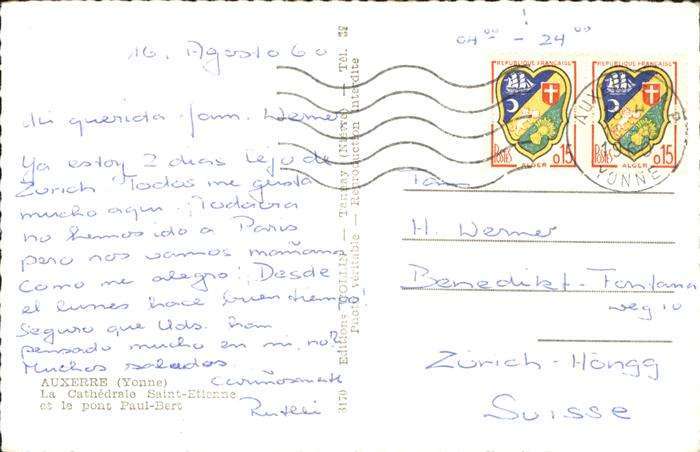 16. Agosto 60
04⁰⁰ - 24⁰⁰
Mi querida fam. Werner
Ya estoy 2 dias lejo de
Zürich. Todos me gusta
mucho aqui. ¡Todavia
no hemos ido a Paris
pero nos vamos mañana
Como me alegro! Desde
el lunes hace buen tiempo!
Seguro que Uds. han
pensado mucho en mi, no?
Muchos saludos
Cariñosamente
AUXERRE (Yonne)
La Cathédrale Saint-Etienne
et le pont Paul-Bert
3170 Editions — Tannay (Nièvre) — Tél. 32
Photo véritable — Reproduction interdite
REPUBLIQUE FRANÇAISE
POSTES
ALGER
0,15
REPUBLIQUE FRANÇAISE
POSTES
ALGER
0,15
YONNE
Fam.
H. Werner
Benedikt-Fontana
weg 10
Zürich-Höngg
Suisse